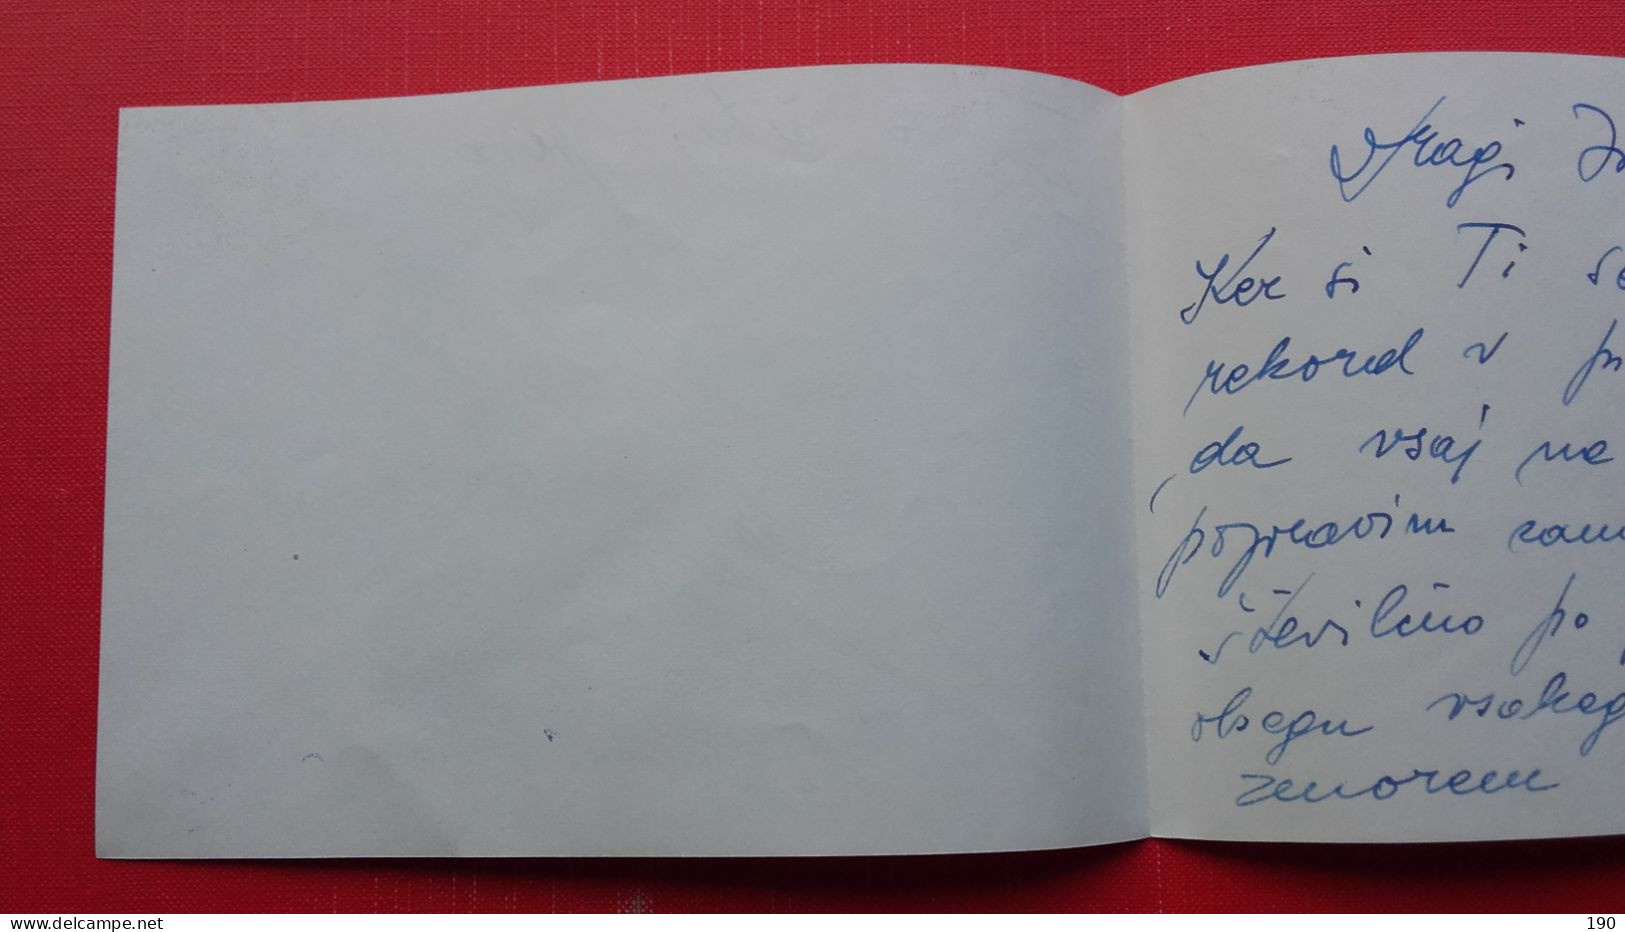 Dragi
Ker si Ti
rekord v
da vsaj na
popravim
številčno po
obsegu vsakeg
zmorem
www.delcampe.net
190